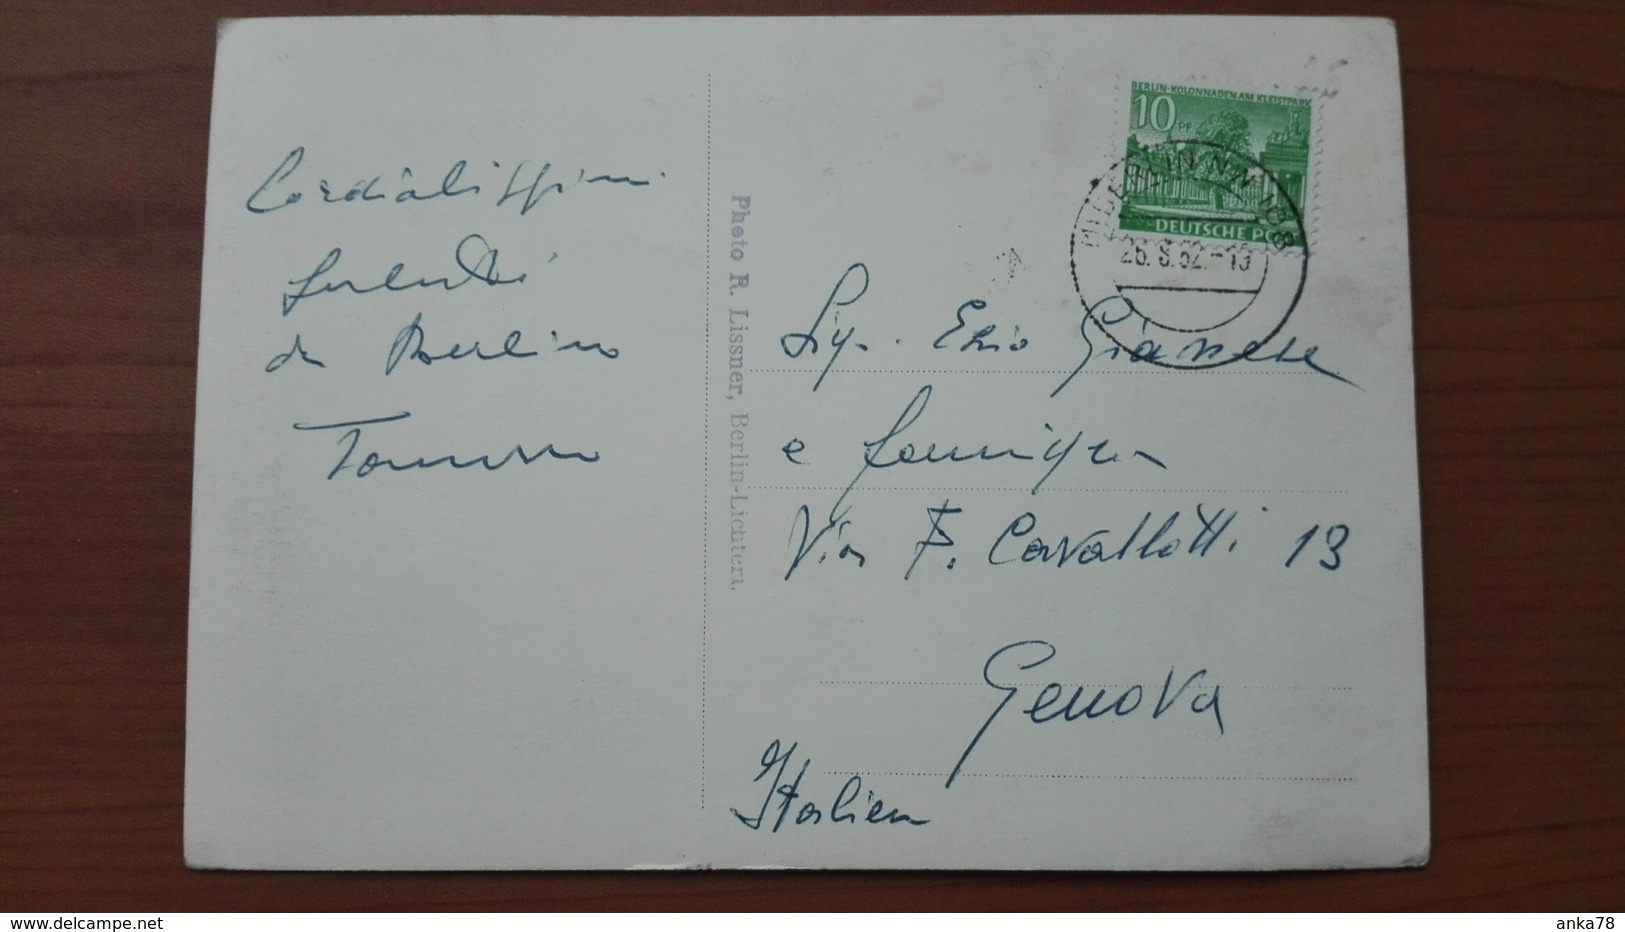 Cordialissimi
saluti
da Berlino
Tommaso
Photo R. Lissner, Berlin-Lichterf.
BERLIN-KOLONNADEN AM KLEISTPARK
10 PF
DEUTSCHE POST
BERLIN NW
26.8.52.-13
Sig. Ezio Gianese
e famiglia
Via F. Cavallotti 13
Genova
Italien
www.delcampe.net
anka78